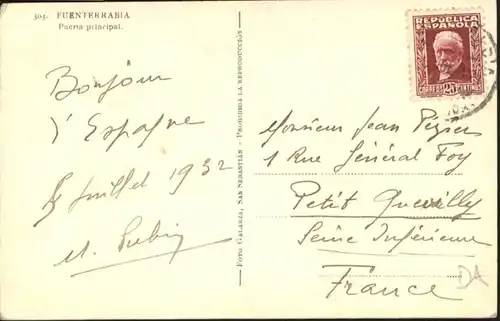 303. FUENTERRABIA
Puerta principal.
Bonjour
d'Espagne
Juillet 1932
FOTO GALARZA, SAN SEBASTIÁN - PROHIBIDA LA REPRODUCCIÓN
REPÚBLICA
ESPAÑOLA
CORREOS 25 CENTIMOS
Monsieur Jean
1 Rue Général Foy
Petit Quevilly
Seine Inférieure
France
DA